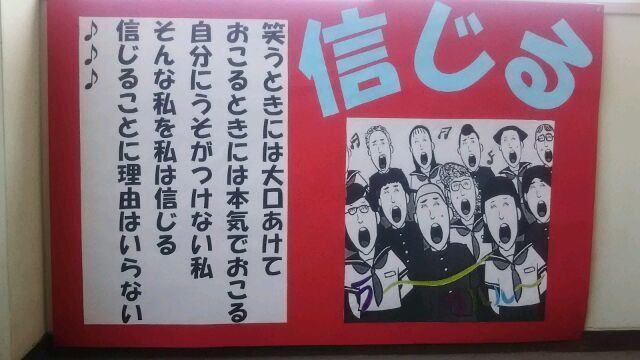 信じる
笑うときには大口あけて
おこるときには本気でおこる
自分にうそがつけない私
そんな私を私は信じる
信じることに理由はいらない
♪♪♪